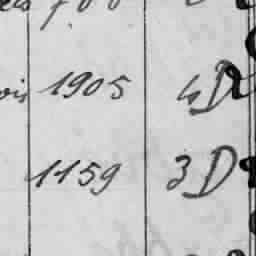 ois 1905 4D
1159 3D